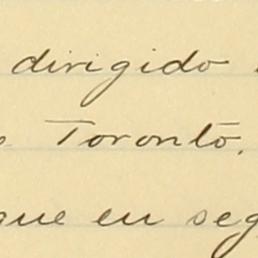 dirigido
Toronto.
que en seg